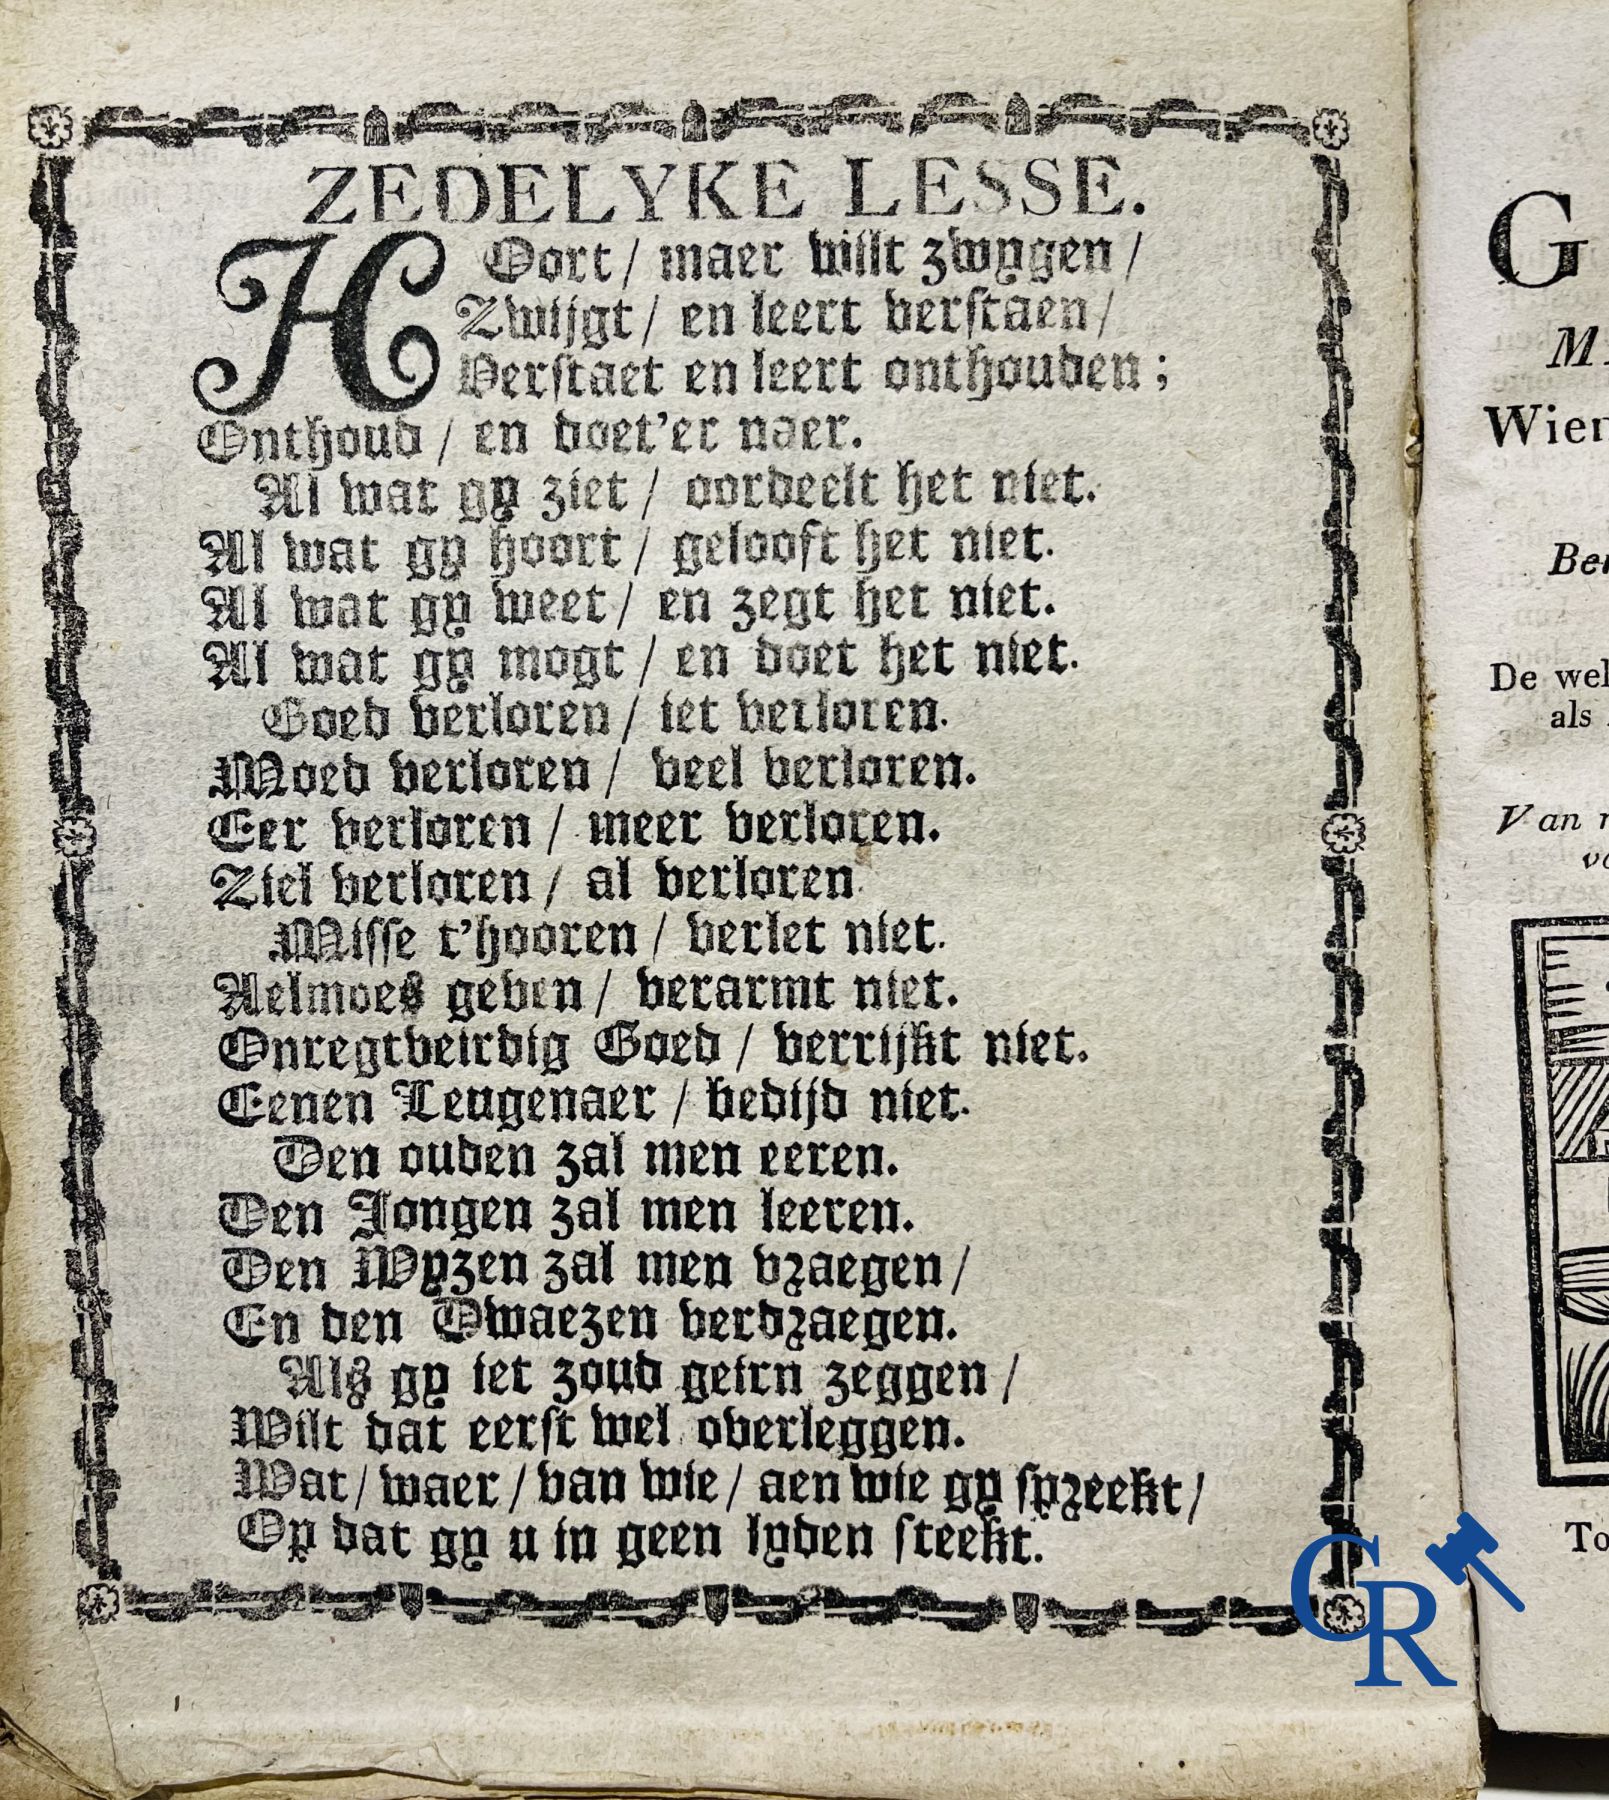 ZEDELYKE LESSE.
HOort / maer willt zwygen /
Zwijgt / en leert verstaen /
Verstaet en leert onthouden ;
Onthoud / en doet'er naer.
Al wat gy ziet / oordeelt het niet.
Al wat gy hoort / gelooft het niet.
Al wat gy weet / en zegt het niet.
Al wat gy mogt / en doet het niet.
Goed verloren / iet verloren.
Moed verloren / veel verloren.
Eer verloren / meer verloren.
Ziel verloren / al verloren.
Misse t'hooren / verlet niet.
Aelmoes geven / verarmt niet.
Onregtveirdig Goed / verrijkt niet.
Eenen Leugenaer / bedijd niet.
Den ouden zal men eeren.
Den Jongen zal men leeren.
Den Wyzen zal men vraegen /
En den Dwaezen verdraegen.
Als gy iet zoud geirn zeggen /
Wilt dat eerst wel overleggen.
Wat / waer / van wie / aen wie gy spreekt /
Op dat gy u in geen lyden steekt.
G
Wien
De wel
als
Van
To
CR